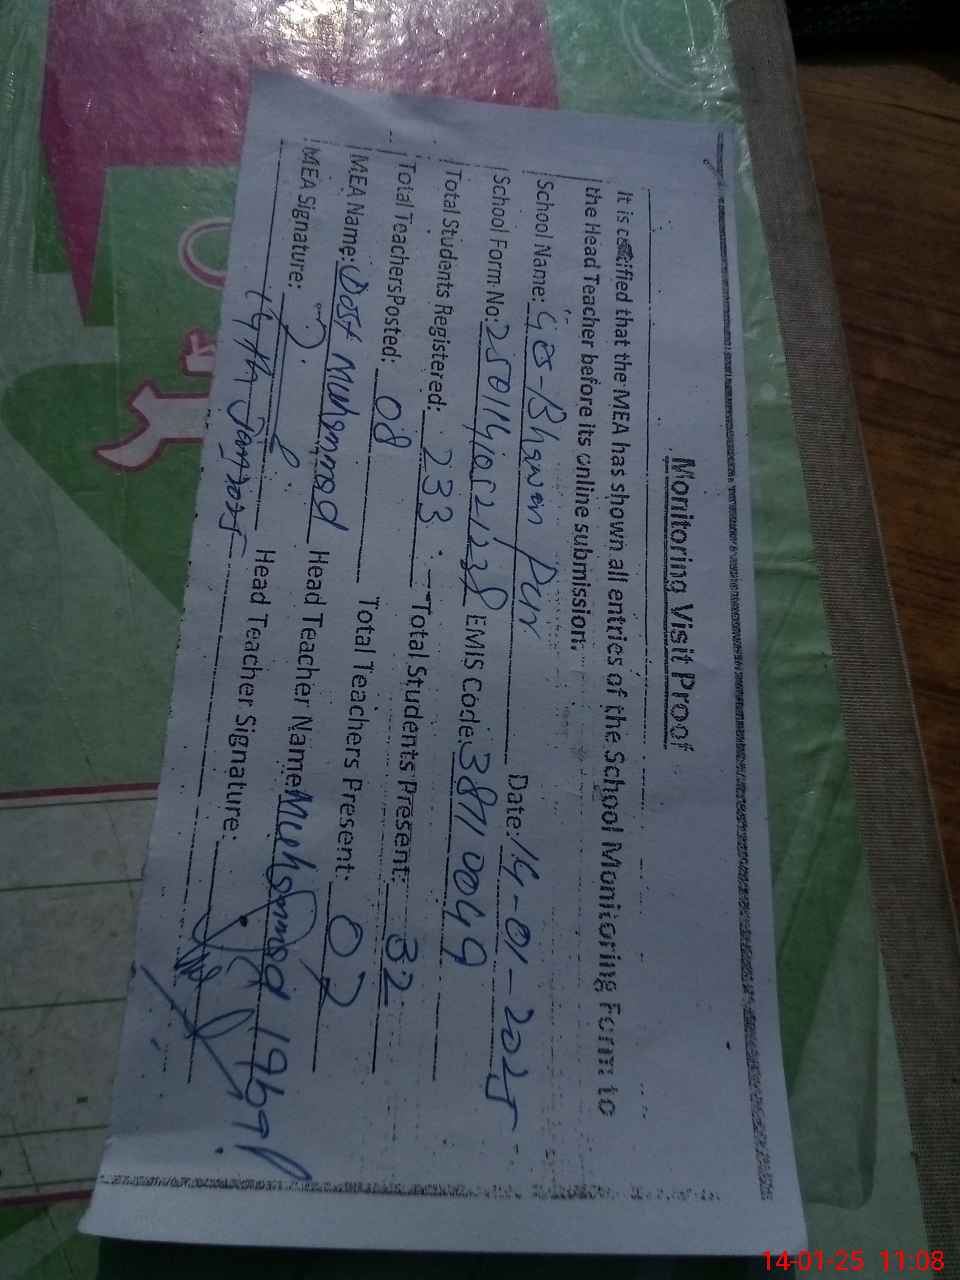 Monitoring Visit Proof
It is certified that the MEA has shown all entries of the School Monitoring Form to
the Head Teacher before its online submission.
School Name: Ges-Bhawan Pur Date: 14-01-2025
School Form No: EMIS Code: 38110049
Total Students Registered: 233 Total Students Present: 32
Total Teachers Posted: 08 Total Teachers Present: 07
MEA Name: Dost Muhammad Head Teacher Name: Muhammad Iqbal
MEA Signature: Head Teacher Signature:
14th Jan, 2025
14-01-25 11:08